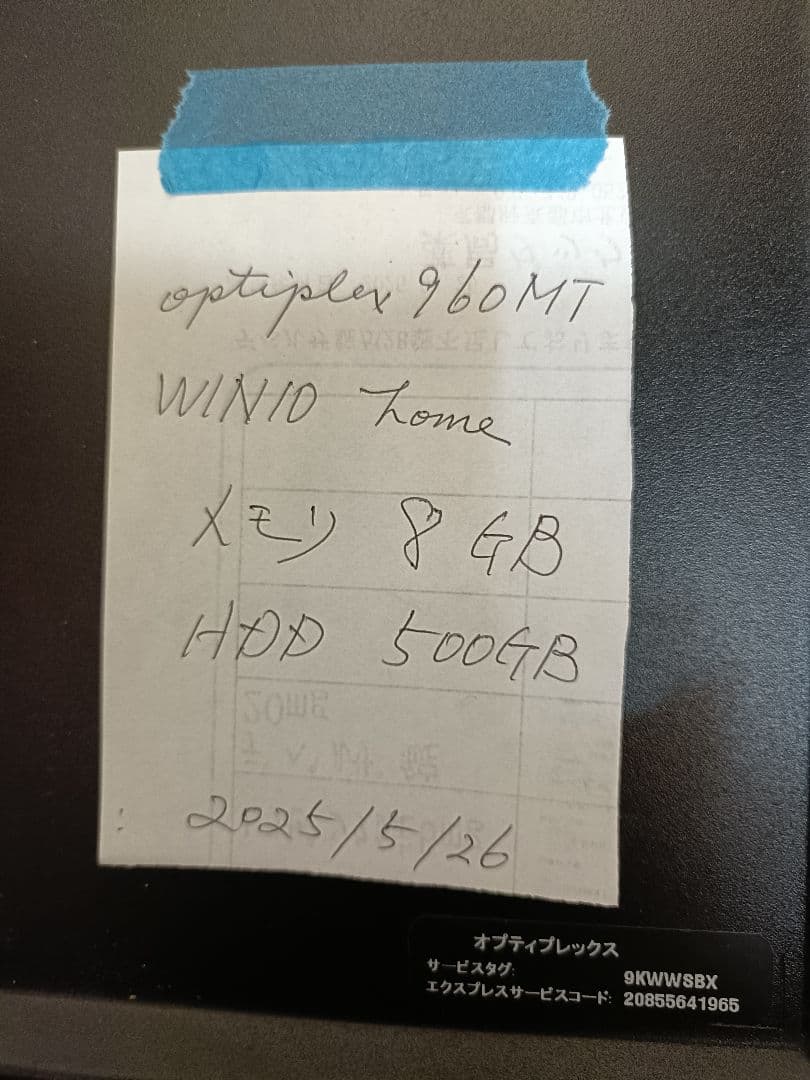 optiplex 960MT
WIN10 home
メモリ 8 GB
HDD 500GB
20mg
: 2025/5/26
オプティプレックス
サービスタグ: 9KWWSBX
エクスプレスサービスコード: 20855641965